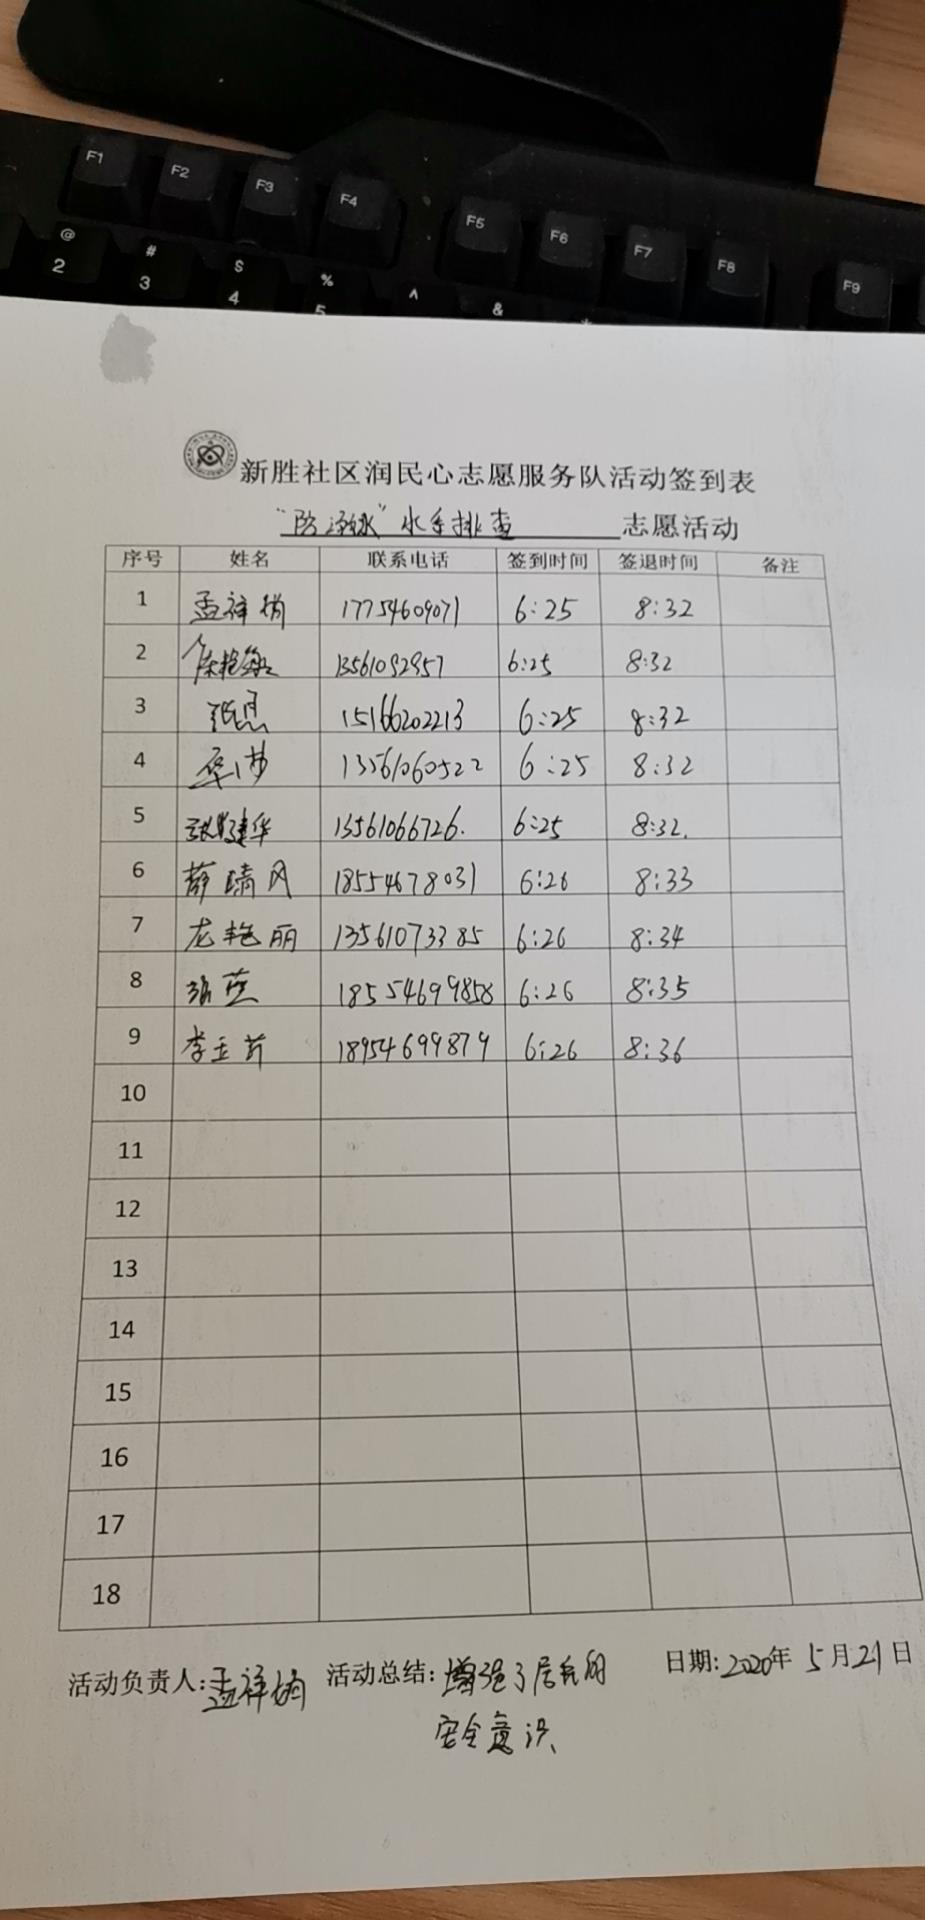 F1 F2 F3 F4 F5 F6 F7 F8 F9
@ # $ % ^ &
2 3 4 5
新胜社区润民心志愿服务队活动签到表
"防溺水"水系排查 志愿活动
序号 姓名 联系电话 签到时间 签退时间 备注
1 孟祥娟 17754609071 6:25 8:32
2 13561092957 6:25 8:32
3 张恩 15166202213 6:25 8:32
4 13561060522 6:25 8:32
5 张建华 13561066726. 6:25 8:32.
6 薛晴风 18554678031 6:26 8:33
7 龙艳丽 13561073385 6:26 8:34
8 18554699858 6:26 8:35
9 李玉芹 18954699879 6:26 8:36
10
11
12
13
14
15
16
17
18
活动负责人:孟祥娟 活动总结:增强了居民的 日期:2020年5月21日
安全意识